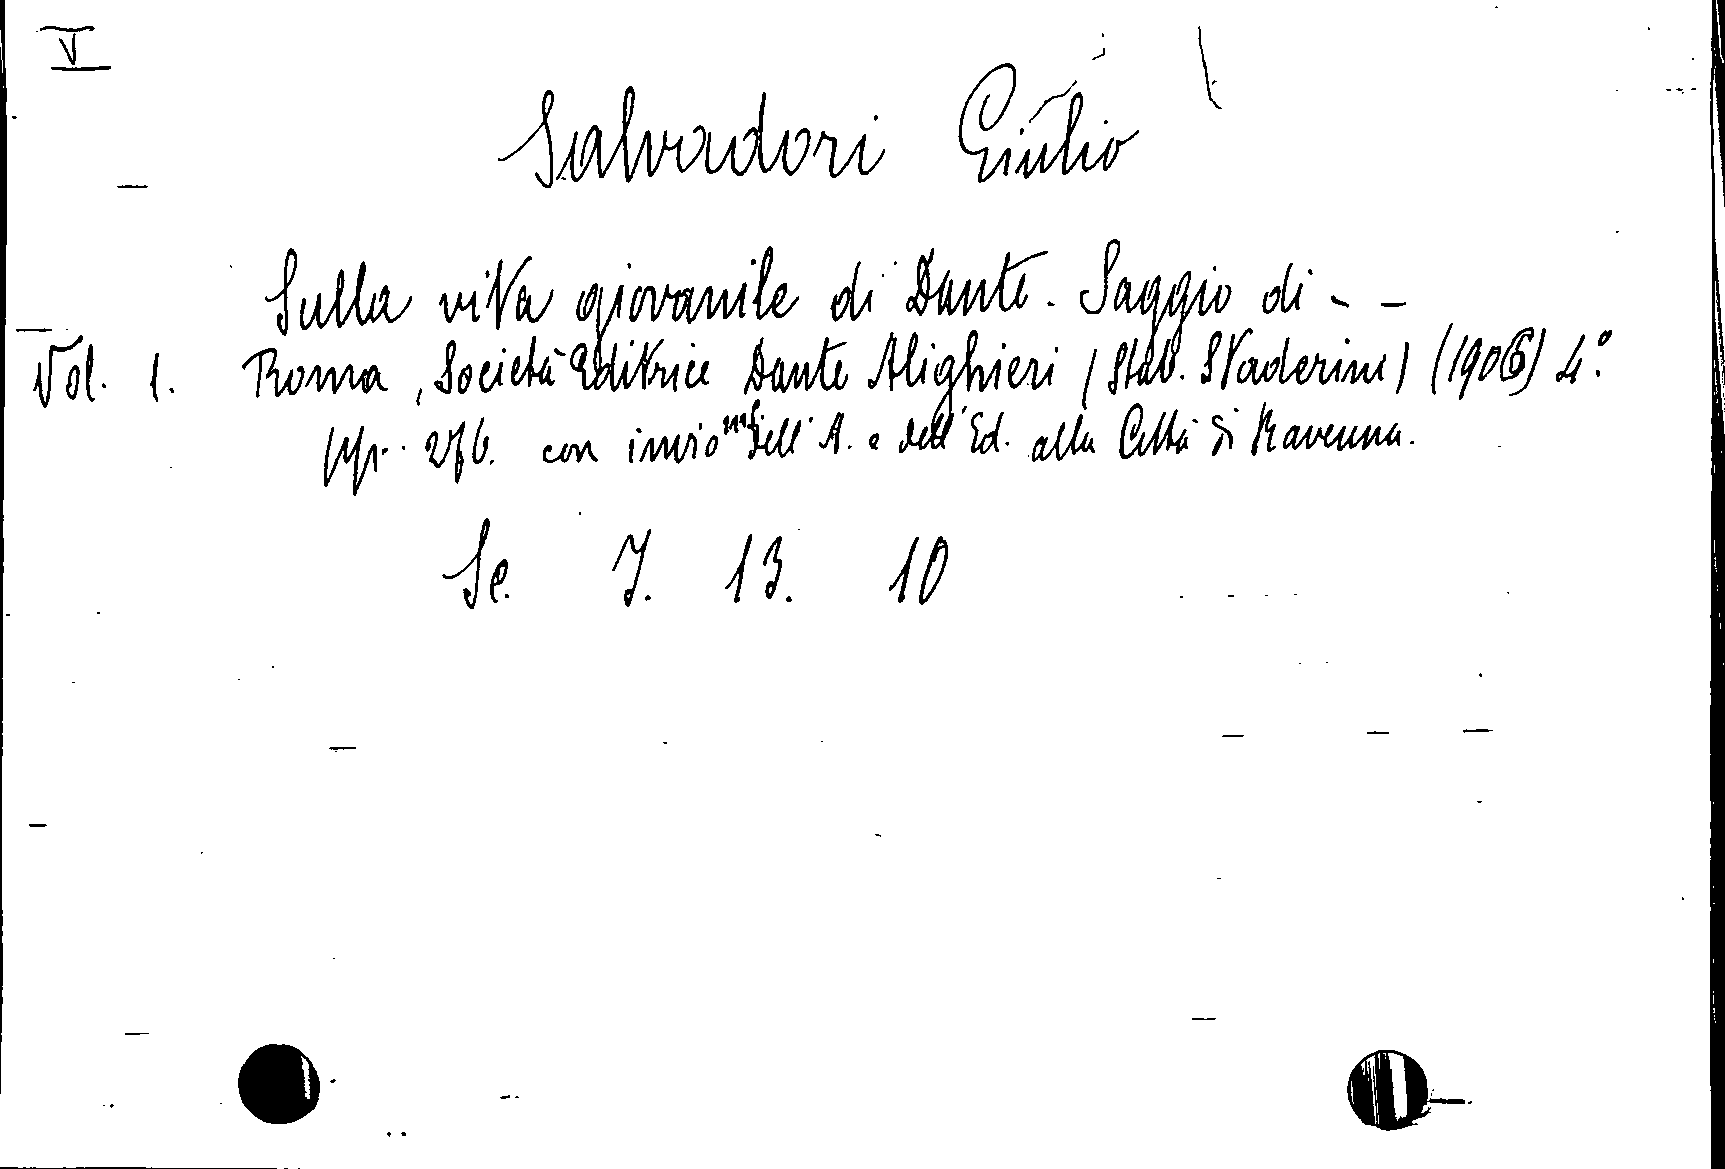 V
Salvadori Giulio
Sulla vita giovanile di Dante. Saggio di - -
Vol. 1. Roma, Società Editrice Dante Alighieri (Stab. Staderini) (1906) 4.°
pp. 276. con invio ms. dell' A. e dell' Ed. alla Città di Ravenna.
Se. 7. 13. 10